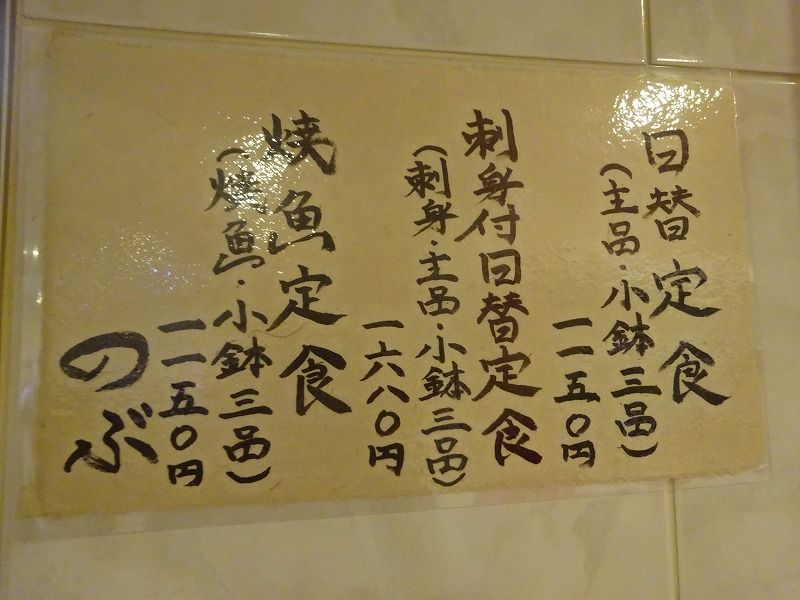 日替定食
(主品・小鉢三品)
一一五〇円
刺身付日替定食
(刺身・主品・小鉢三品)
一六八〇円
焼魚定食
(焼魚・小鉢三品)
一一五〇円
のぶ